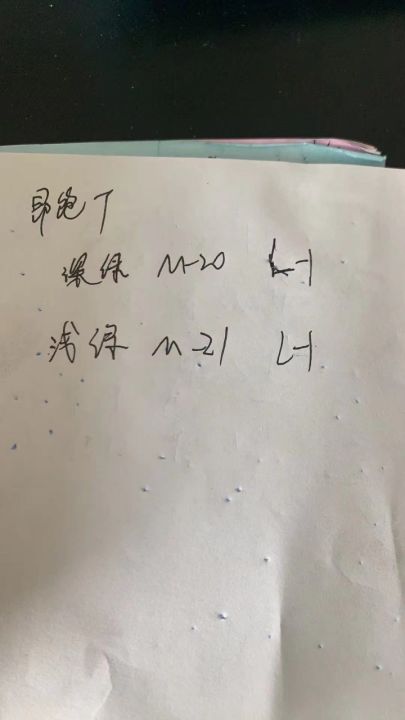 印跑T
深绿 M-20 L-1
浅绿 M-21 L-1